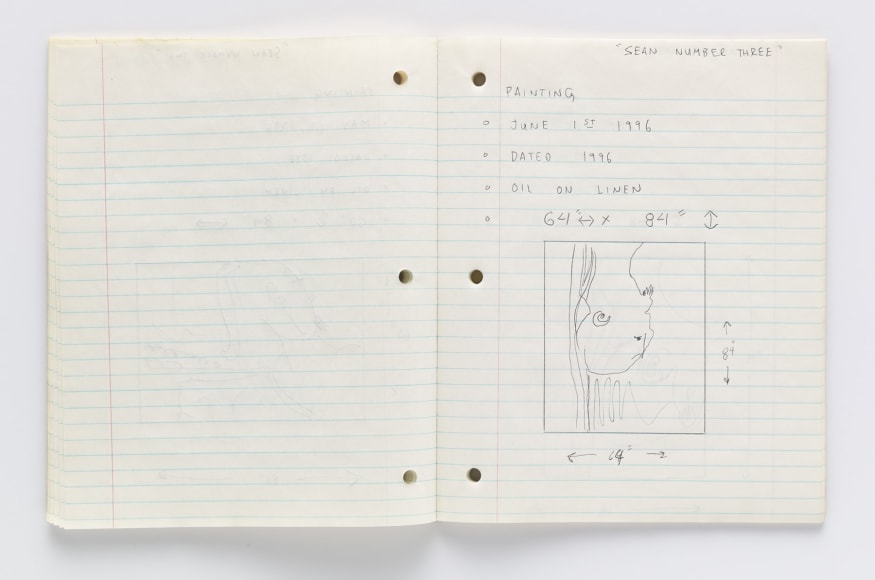 "SEAN NUMBER THREE"
PAINTING
° JUNE 1ST 1996
° DATED 1996
° OIL ON LINEN
° 64" ↔ x 84" ↕
84"
64"